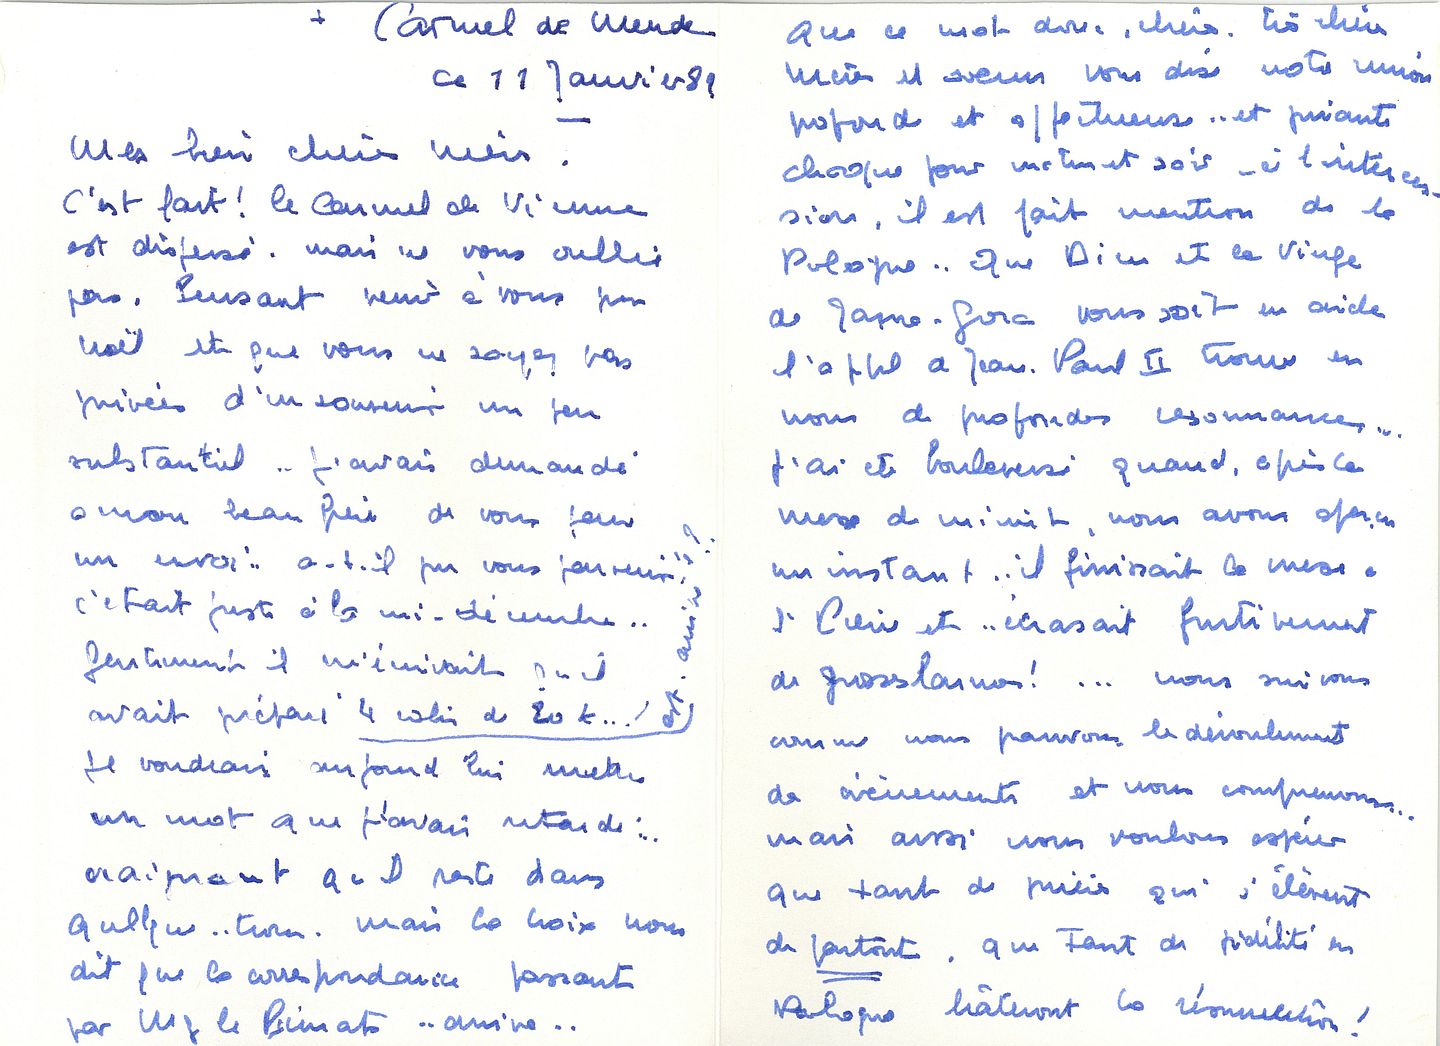 + Carmel de Mende
ce 11 Janvier 82
Mes bien chères Mères.
C'est fait! le Carmel de Vienne
est dispersé. mais ne vous oublie
pas. Pensant venir à vous pour
Noël et que vous ne soyez pas
privées d'un souvenir un peu
substantiel .. j'avais demandé
a mon beau frère de vous faire
un envoi .. a-t-il pu vous parvenir ..?
c'était juste à la mi-décembre ..
Gentiment il m'écrivait qu'il
avait préparé 4 colis de 20 k...!
est. arrivé?
Je voudrais surtout lui mettre
un mot que j'avais retardé ...
craignant qu'il reste dans
quelque .. trou. mais la Croix nous
dit que la correspondance passant
par Mgr le Primat .. arrive ..
Que ce mot donc, chère. très chère
Mère et soeurs vous dise notre union
profonde et affectueuse .. et priante
chaque jour matin et soir - à l'interces-
sion, il est fait mention de la
Pologne .. Que Dieu et la Vierge
de Jasna-Gora vous soit en aide
l'appel a Jean. Paul II trouve en
nous de profondes resonnances...
j'ai été bouleversé quand, après la
messe de minuit, nous avons aperçu
un instant .. il finissait la messe à
St Pierre et .. écrasait furtivement
de grosses larmes! ... nous suivons
comme nous pouvons le déroulement
des évènements et nous comprenons...
mais aussi nous voulons espérer
que tant de prières qui s'élèvent
de partout, que tant de fidélité en
Pologne hâteront la résurrection!